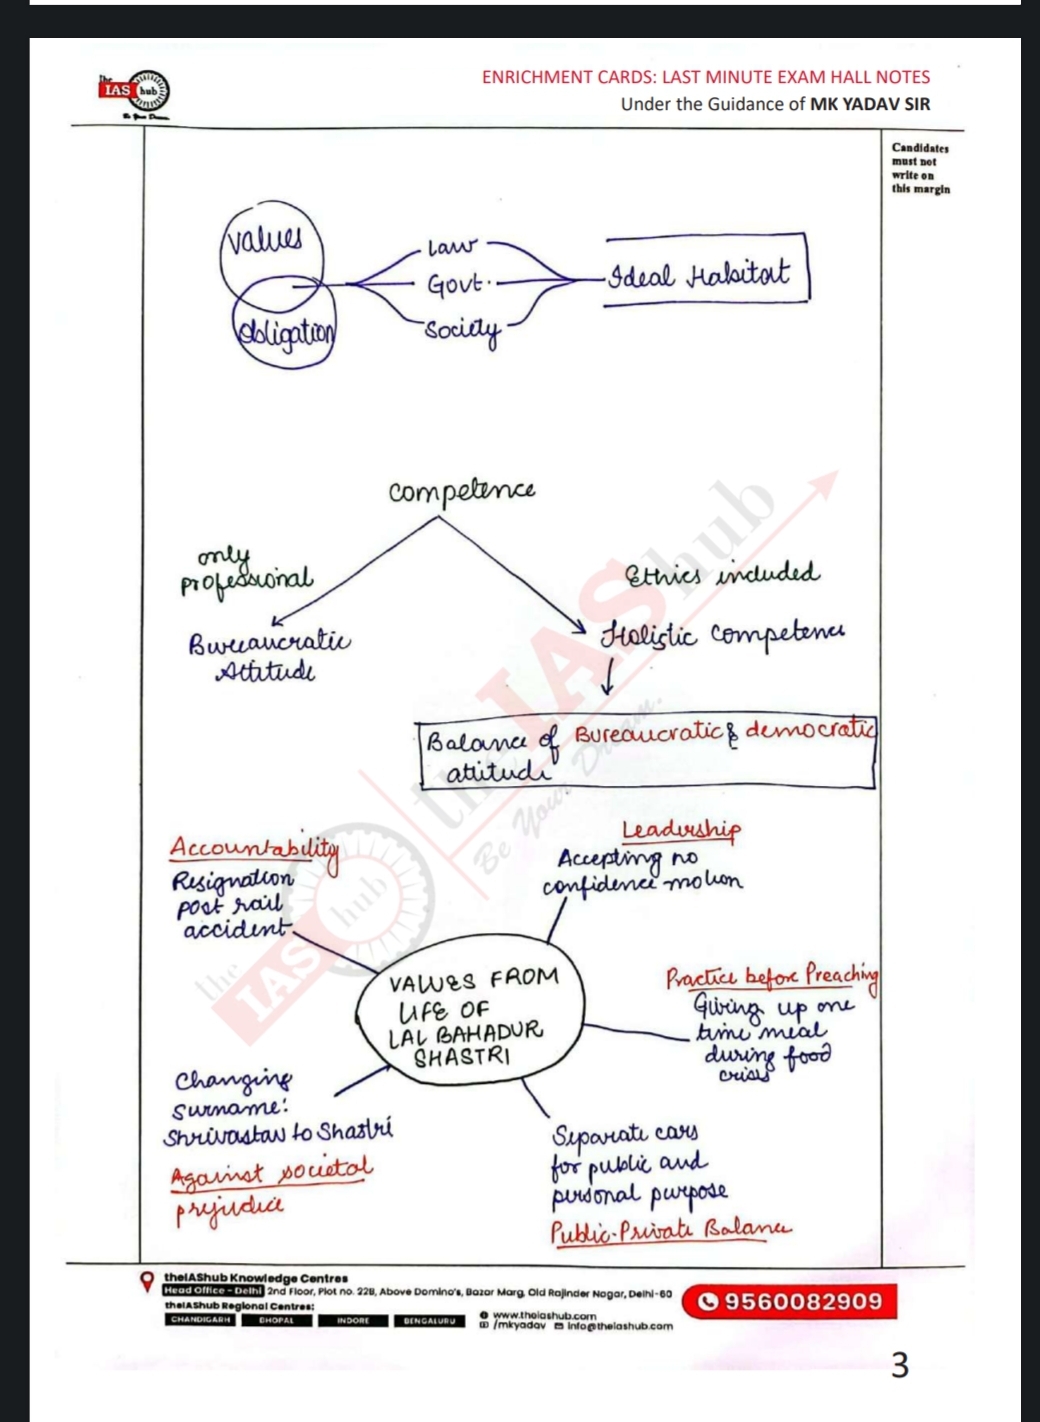 the
IAS hub
Be Your Dream.
ENRICHMENT CARDS: LAST MINUTE EXAM HALL NOTES
Under the Guidance of MK YADAV SIR
Candidates
must not
write on
this margin
values
obligation
Law
Govt.
Society
Ideal Habitat
Competence
only
professional
Bureaucratic
Attitude
Ethics included
Holistic Competence
Balance of Bureaucratic & democratic
attitude
Accountability
Resignation
post rail
accident
Leadership
Accepting no
confidence motion
VALUES FROM
LIFE OF
LAL BAHADUR
SHASTRI
Practice before Preaching
Giving up one
time meal
during food
crisis
Changing
Surname:
Shrivastav to Shastri
Against societal
prejudice
Separate cars
for public and
personal purpose
Public-Private Balance
the IAS hub
Be Your Dream.
theIAShub Knowledge Centres
Head Office - Delhi 2nd Floor, Plot no. 22B, Above Domino's, Bazar Marg, Old Rajinder Nagar, Delhi-60
theIAShub Regional Centres:
CHANDIGARH BHOPAL INDORE BENGALURU
www.theiashub.com
/mkyadav info@theiashub.com
9560082909
3